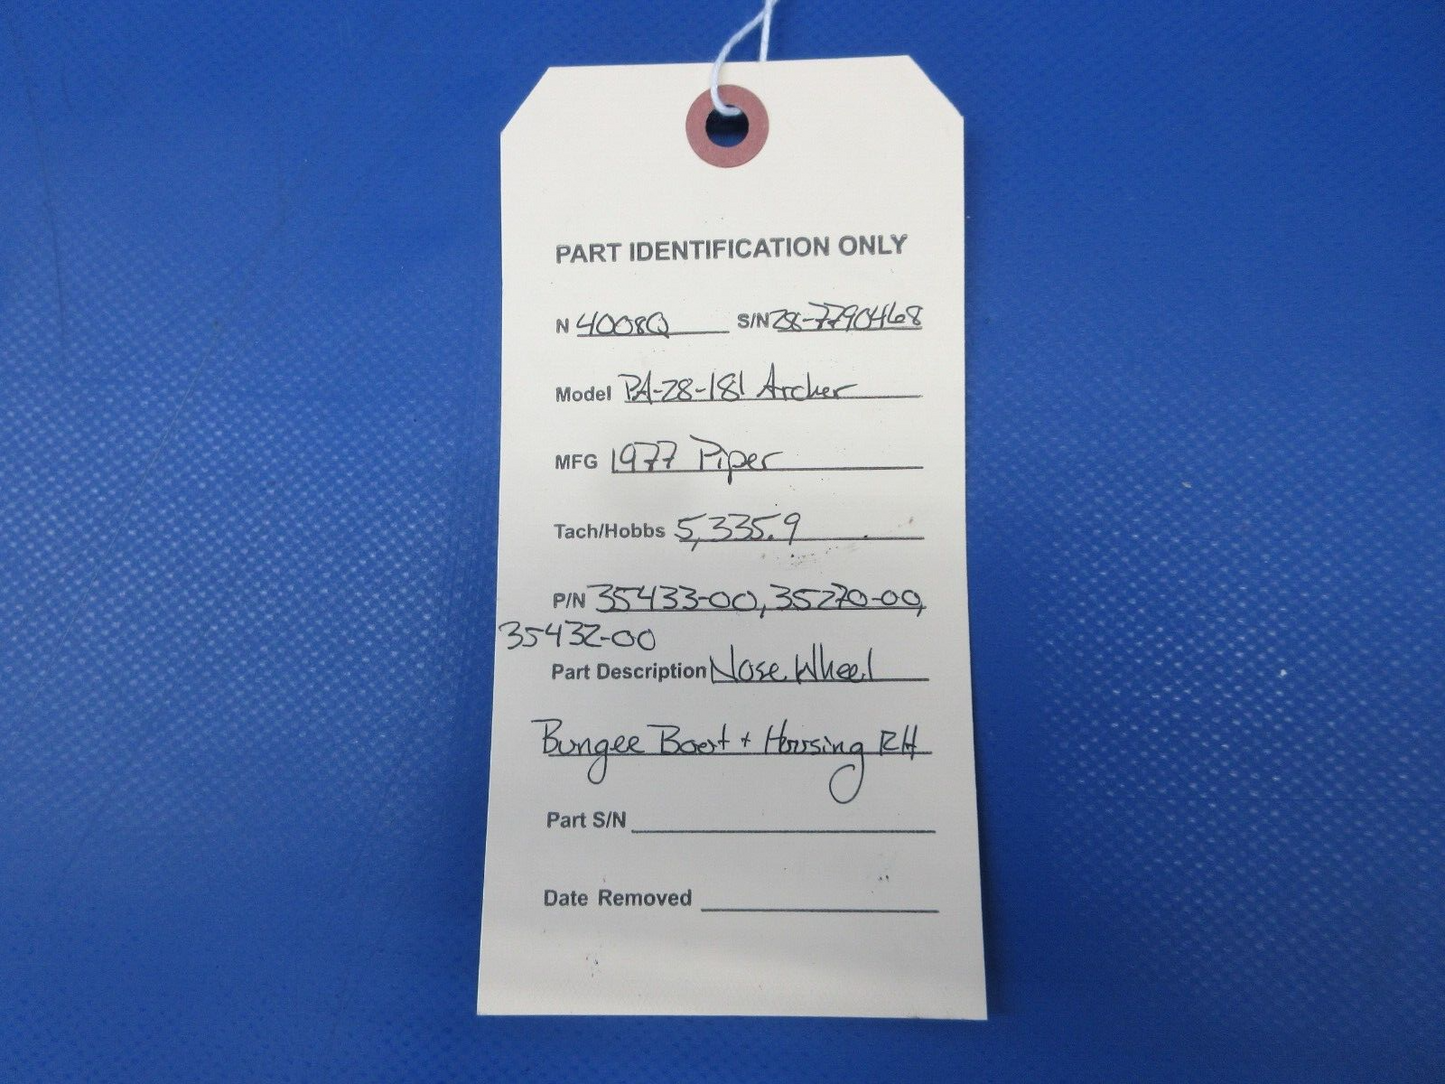 PART IDENTIFICATION ONLY
N 4008Q S/N 28-7790468
Model PA-28-181 Archer
MFG 1977 Piper
Tach/Hobbs 5,335.9
P/N 35433-00, 35270-00,
35432-00
Part Description Nose Wheel
Bungee Boot + Housing RH
Part S/N
Date Removed